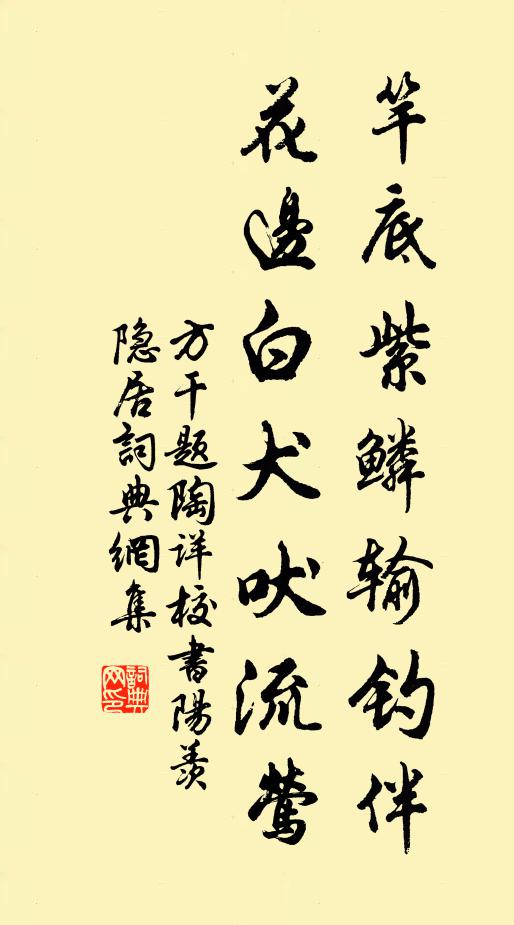 竿底紫鱗输钓伴
花邊白犬吠流莺
方干题陶详校書陽羡
隐居詞典網集
詞典网印